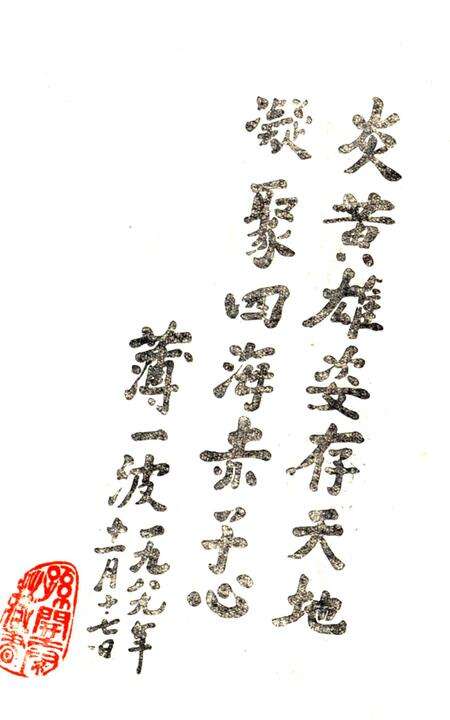 炎黄雄姿存天地
凝聚四海赤子心
薄一波
一九八九年
十二月十七日